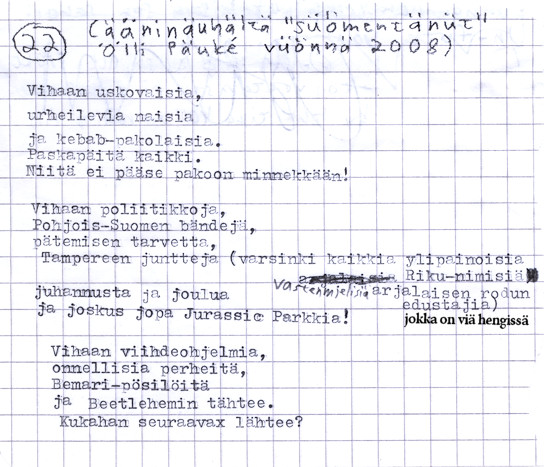 22 (ääninäuhältä "süömentänüt"
Ölli Päuké vüönnä 2008)
Vihaan uskovaisia,
urheilevia naisia
ja kebab-pakolaisia.
Paskapäitä kaikki.
Niitä ei pääse pakoon minnekkään!
Vihaan poliitikkoja,
Pohjois-Suomen bändejä,
pätemisen tarvetta,
Tampereen juntteja (varsinki kaikkia ylipainoisia
Riku-nimisiä
vastenmielisiä arjalaisen rodun
edustajia)
jokka on viä hengissä
juhannusta ja joulua
ja joskus jopa Jurassic Parkkia!
Vihaan viihdeohjelmia,
onnellisia perheitä,
Bemari-pösilöitä
ja Beetlehemin tähtee.
Kukahan seuraavax lähtee?